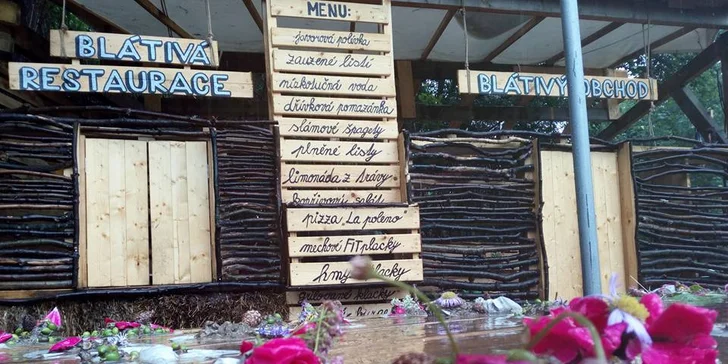 BLÁTIVÁ
RESTAURACE
MENU:
javorová polívka
zauzené listí
nízkotučná voda
dřívková pomazánka
slámové špagety
plněné listy
limonáda z trávy
kopřivový salát
pizza La poleno
mechové FIT placky
hmy placky
BLÁTIVÝ OBCHOD